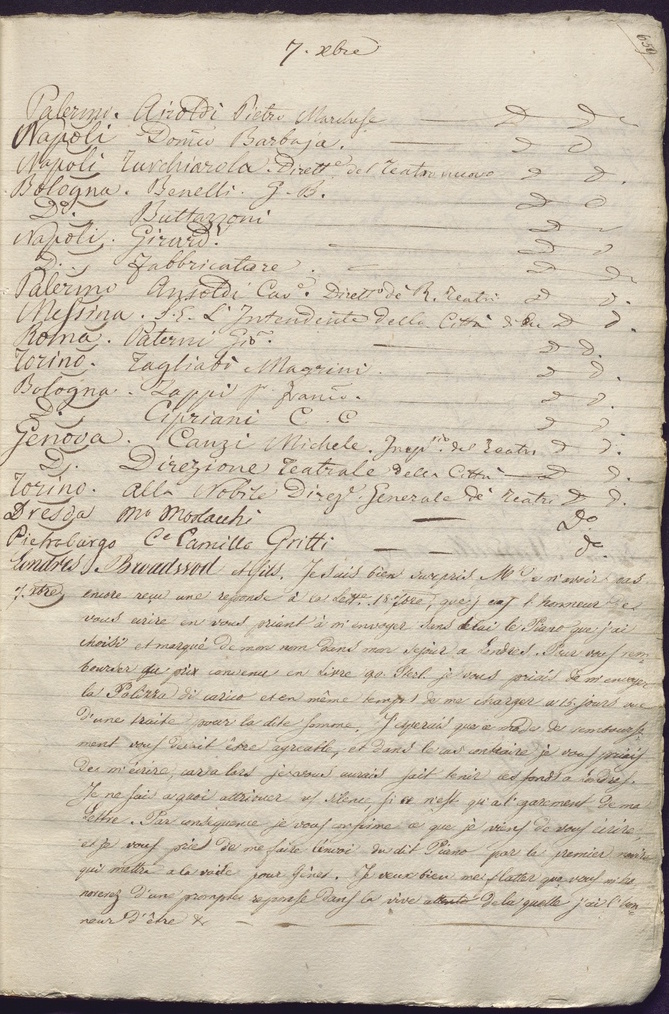 659
7. xbre
Palermo. Airoldi Pietro Marchese — D D
Napoli Domco Barbaja. — D D
Napoli Turchiarola. Dirette. del Teatro nuovo D D.
Bologna. Benelli. G. B. D D
Do. Buttazzoni D
Napoli. Girard. — D D
D. Fabbricatore. — D D
Palermo Ansoldi Cave. Diretto de R. Teatri D D.
Messina. S. E. L'Intendente della Città D D.
Roma. Paterni Gio. — D D.
Torino. Tagliabò e Magrini. — D D.
Bologna. Zappi — D D.
D. Cipriani C. C D D.
Genova. Canzi Michele. del Teatro D D.
D. Direzione Teatrale della Città — D D.
Torino. Alla Nobile Direze. Generale de Teatri D D.
Dresda Mo Morlacchi — Do.
Pietroburgo Ce Camillo Gritti — — do.
Londres. Broadswod et fils. Je suis bien surpris Mrs n'avoir pas
7. xbre encore reçu une reponse à la Lettre 18 que j'eus l'honneur
vous ecrire en vous prient à m'envoyer sans delai le Piano que j'ai
choisi et marqué de mon nom dans mon sejour a Londres. Pour vous rem-
bourser du prix convenu en Livre 90. Sterl. je vous priais de m'envoyer
la Polizza di carico et en même temps de me charger a 15 jours vue
d'une traite pour la dite somme. J'esperais que ce mode de rembourse-
ment vous devait être agreable, et dans le cas contraire je vous priais
de m'écrire, car alors je vous aurais fait tenir ces fonds a Londres.
Je ne sais a quoi attribuer vs silence si ce n'est qu'a l'egarement de ma
Lettre. Par consequence je vous confirme ce que je viens de vous écrire,
et je vous priet de me faire l'envoi du dit Piano par le premier navire
qui mettra a la voile pour Gênes. Je veux bien me flatter que vous m'ho-
norerez d'une prompte reponse dans la vive attente de la quelle j'ai l'hon-
neur d'être &